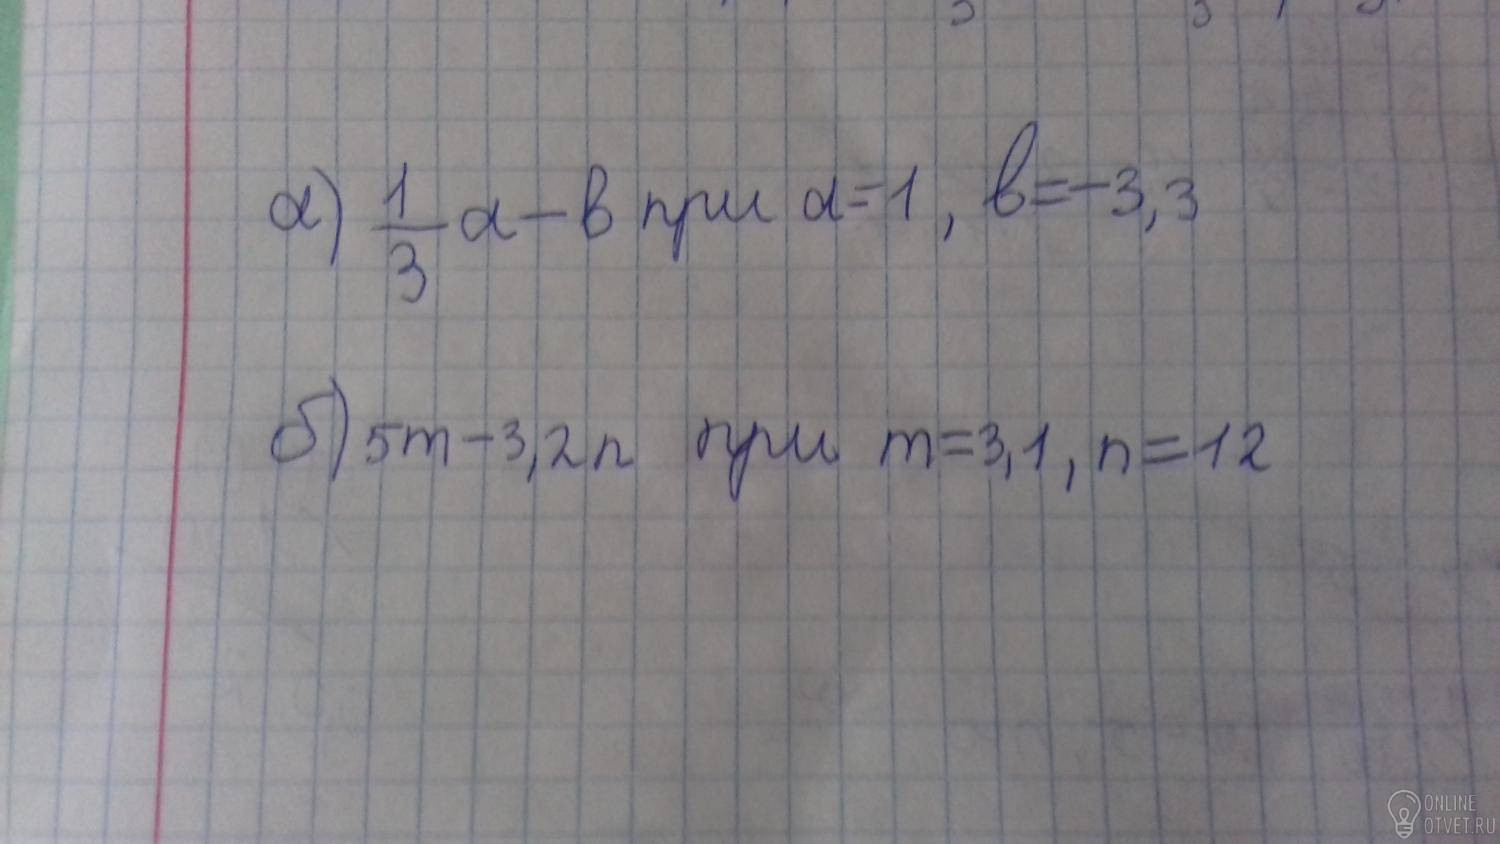 а) 1/3 a - b при a=1, b=-3,3
б) 5m-3,2n при m=3,1, n=12
ONLINE
OTVET.RU